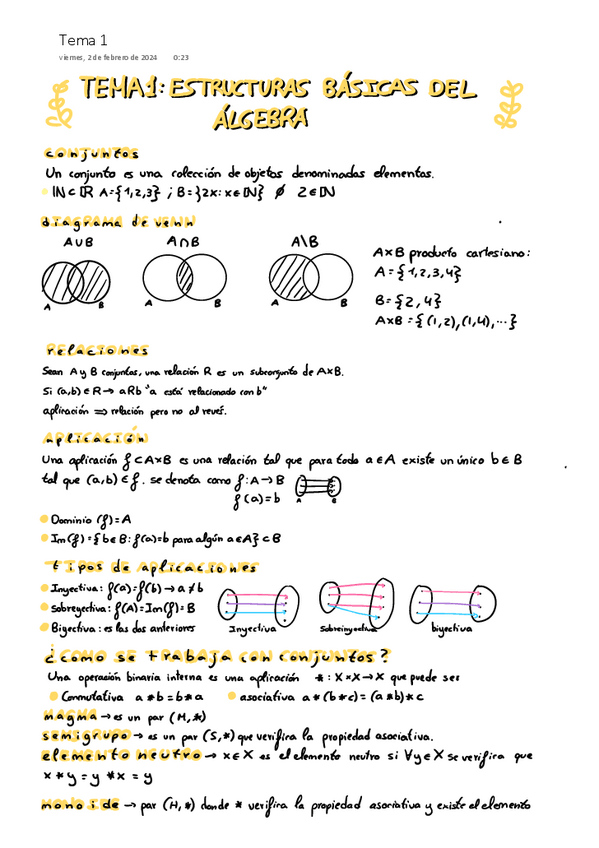 Tema 1
viernes, 2 de febrero de 2024 0:23
TEMA1: ESTRUCTURAS BÁSICAS DEL
ÁLGEBRA
conjuntos
Un conjunto es una colección de objetos denominados elementos.
ℕ⊂ℝ A={1,2,3} ; B={2x: x∈ℕ} ∅ 2∈ℕ
diagrama de venn
A∪B A∩B A\B
A B A B A B
A×B producto cartesiano:
A={1,2,3,4}
B={2,4}
A×B={(1,2),(1,4),...}
relaciones
Sean A y B conjuntos, una relación R es un subconjunto de A×B.
Si (a,b)∈R→ aRb "a está relacionado con b"
aplicación ⇒ relación pero no al revés.
aplicación
Una aplicación f⊂A×B es una relación tal que para todo a∈A existe un único b∈B
tal que (a,b)∈f. se denota como f:A→B
f(a)=b
A B
Dominio (f)=A
Im(f)={b∈B: f(a)=b para algún a∈A}⊂B
tipos de aplicaciones
Inyectiva: f(a)=f(b)→a≠b
Sobreyectiva: f(A)=Im(f)=B
Biyectiva: es las dos anteriores
Inyectiva Sobreinyectiva biyectiva
¿como se trabaja con conjuntos?
Una operación binaria interna es una aplicación *: X×X→X que puede ser
Conmutativa a*b=b*a asociativa a*(b*c)=(a*b)*c
magma→es un par (M,*)
semigrupo→es un par (S,*) que verifica la propiedad asociativa.
elemento neutro→ x∈X es el elemento neutro si ∀y∈X se verifica que
x*y=y*x=y
monoide→par (M,*) donde * verifica la propiedad asociativa y existe el elemento